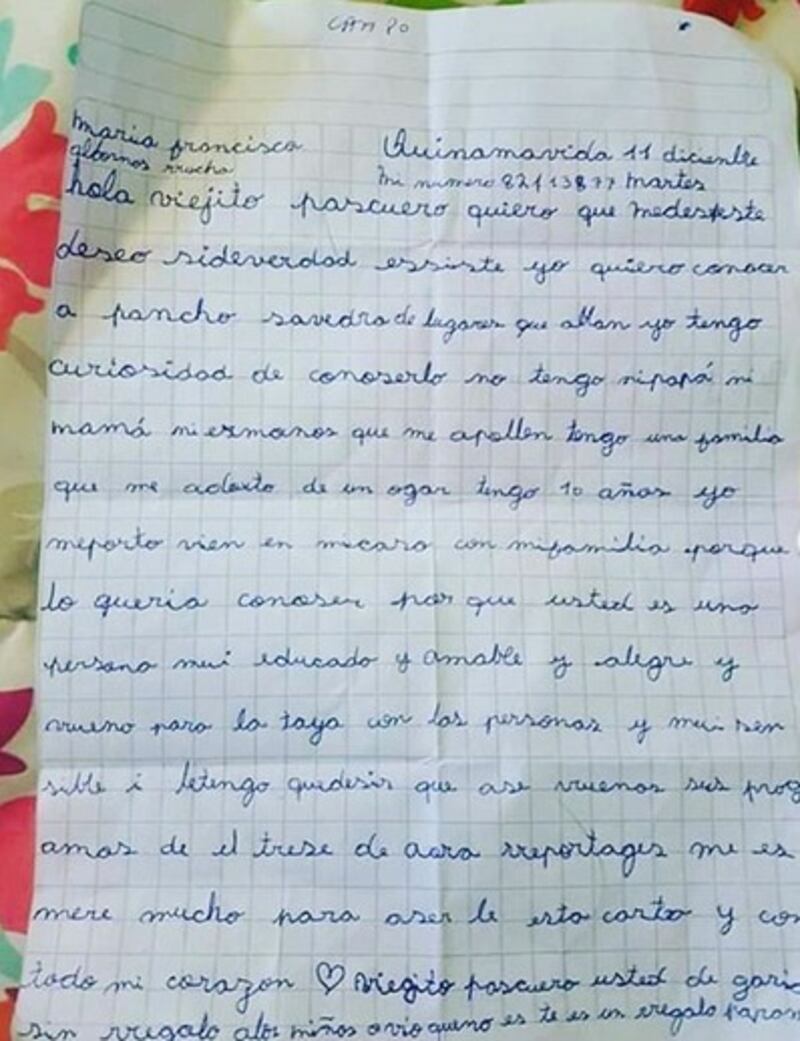 CAMPO
maria francisca Quinamavida 11 diciembre
albornos rrocha mi numero 82113877 martes
hola viejito pascuero quiero que medes este
deseo sideverdad essiste yo quiero conocer
a pancho savedra de lugares que ablan yo tengo
curiosidad de conoserlo no tengo nipapá ni
mamá niermanos que me apollen tengo una familia
que me adocto de un ogar tengo 10 años yo
meporto vien en micasa con mifamilia porque
lo queria conoser por que usted es una
persona mui educado y amable y alegre y
vueno para la taya con las personas y mui sen
sible i letengo quedesir que ase vuenos sus prog
amas de el trese de aora rreportages me es
mere mucho para aser le esta carta y con
todo mi corazon ♡ viegito pascuero usted de garia
sin rregalo alos niños ovio queno es te es un rregalo param